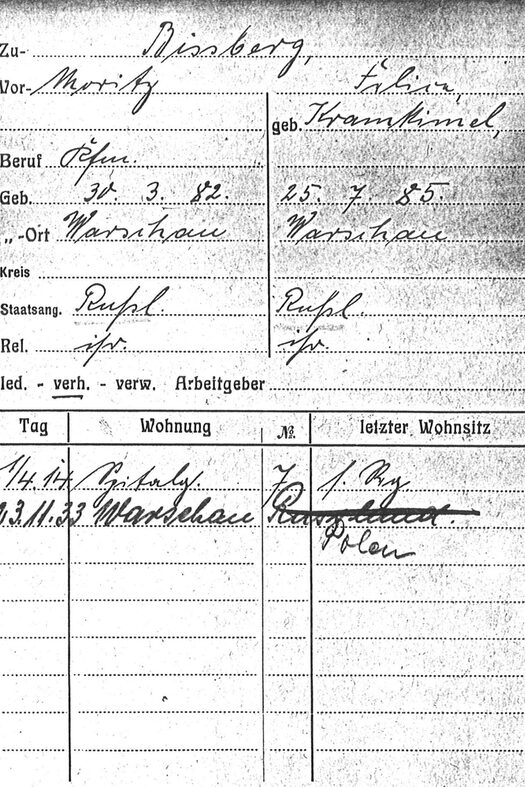 Zu- Bissberg,
Vor- Moritz Felicia,
geb. Kramkimel,
Beruf Kfm.
Geb. 30. 3. 82. 25. 7. 85.
„-Ort Warschau Warschau
Kreis
Staatsang. Rußl. Rußl.
Rel. isr. isr.
led. - verh. - verw. Arbeitgeber
Tag Wohnung № letzter Wohnsitz
1/4.14 Spitalg. 7
3.11.33 Warschau Russland.
Polen